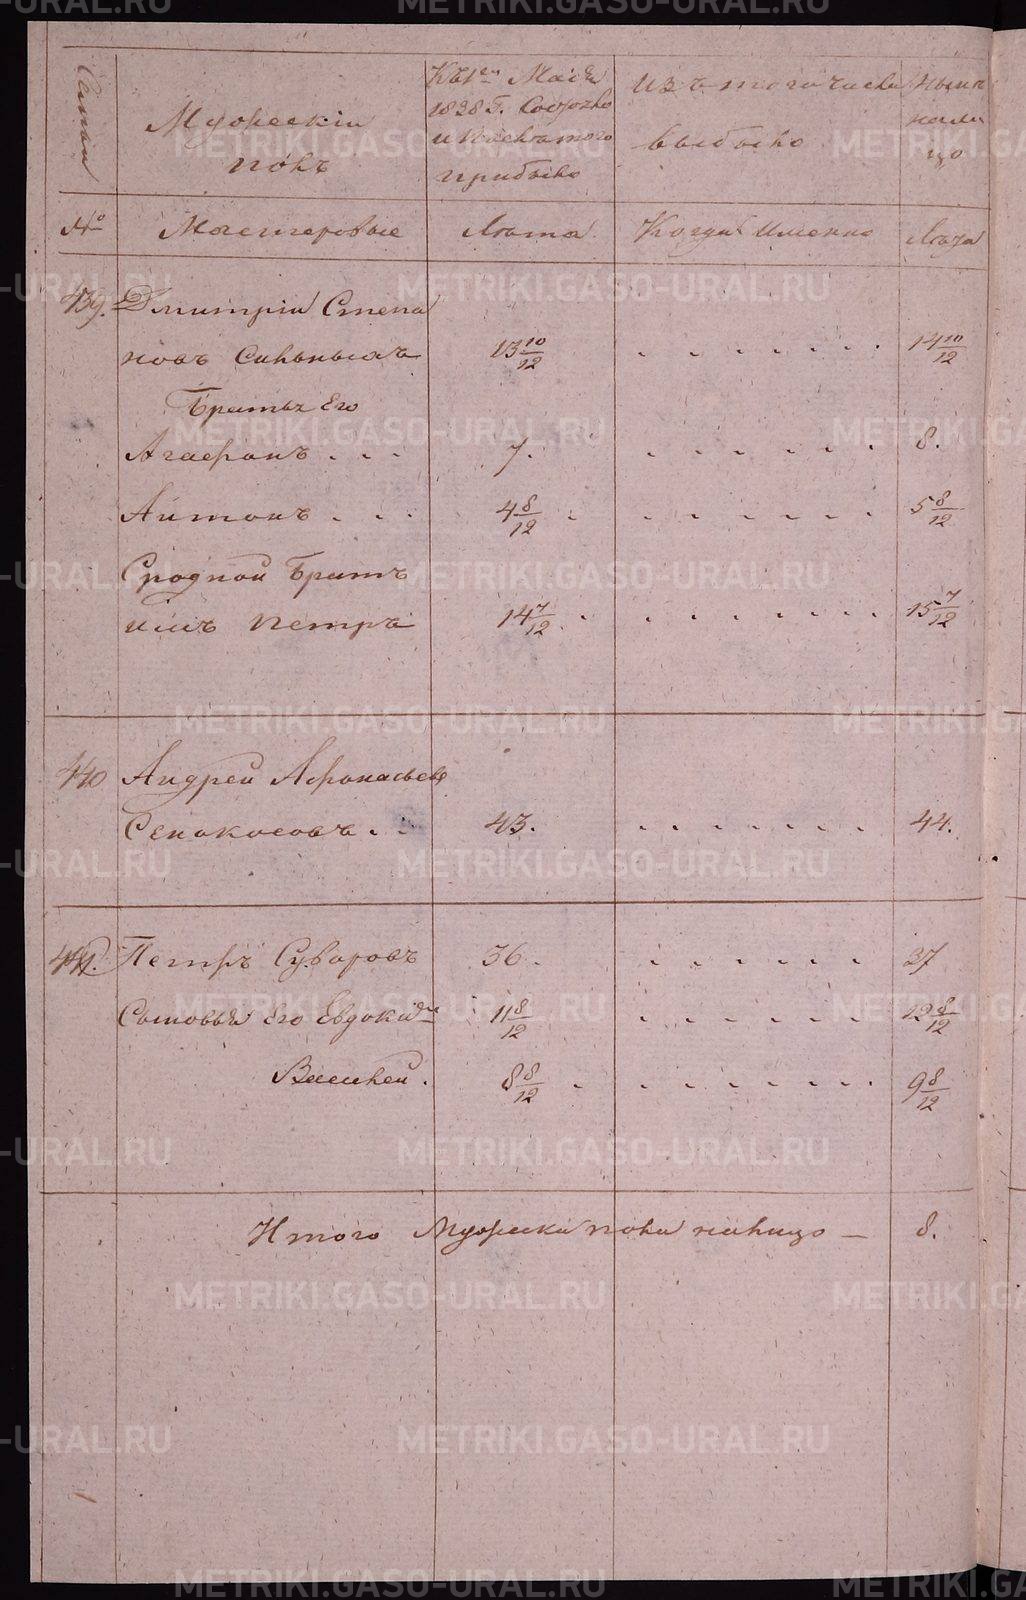 Семьи
Мужескій
полъ
Къ 1му Маія
1838 г. Состояло
и после того
прибыло
Изъ того числа
выбыло
Ныне
нали
цо
№
Мастеровые
Лѣта
Когда именно
Лѣта
439. Дмитрій Степа
новъ Синьныхъ 13 10/12 14 10/12
Братья Его
Агафонъ . . . 7. 8.
Антонъ . . . 4 8/12 5 8/12
Сродной братъ
имъ Петръ 14 7/12 15 7/12
440 Андрей Афонасьевъ
Сенокосовъ . . 43. 44.
441. Петръ Суворовъ 36. 37
Сыновья Его Евдокимъ 11 8/12 12 8/12
Василей . 8 8/12 9 8/12
Итого Мужеска пола налицо — 8.
METRIKI.GASO-URAL.RU